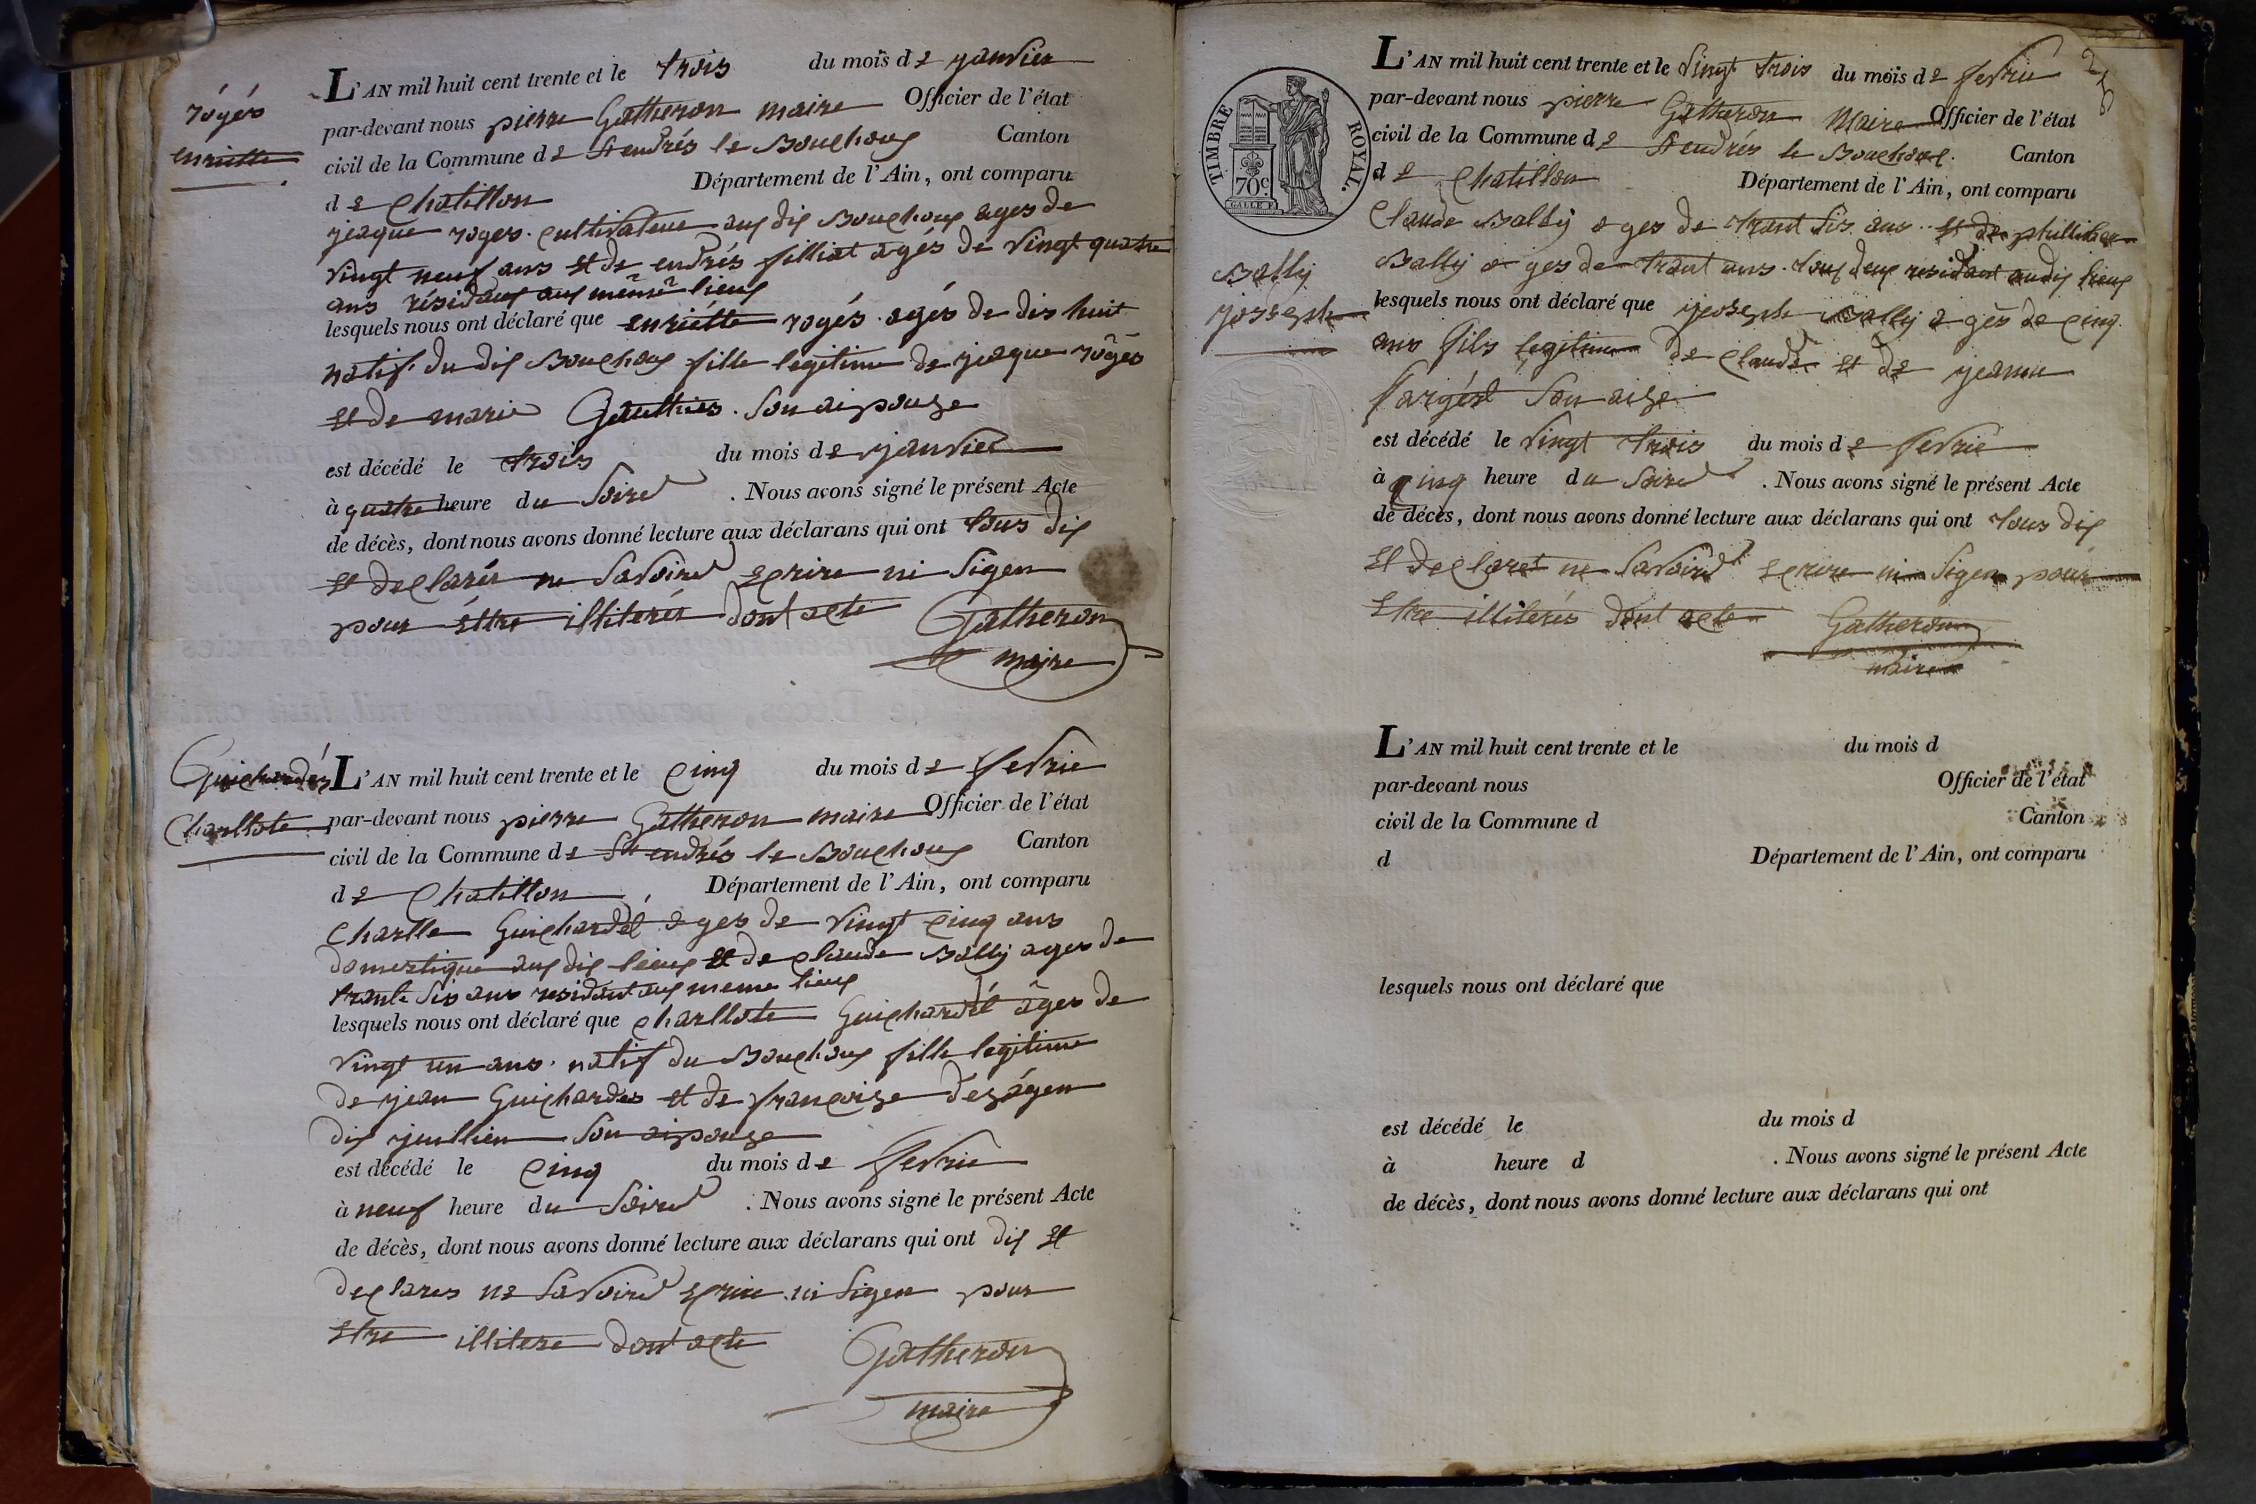 rógés
enriette
L'AN mil huit cent trente et le trois du mois de janvier
par-devant nous pierre Gatheron maire Officier de l'état
civil de la Commune de St endrés le Bouchoux Canton
de Chatillon Département de l'Ain, ont comparu
jeaque roges cultivateur aux dix Bouchoux ages de
vingt neuf ans et de endrés filliat agés de vingt quatre
ans résidaux aux même lieux
lesquels nous ont déclaré que enriétte rogés agés de dix huit
natif du dix Bouchoux fille legitime de jeaque rogés
et de marie Gauthier son aipouze
est décédé le trois du mois de janvier
à quatre heure du soire . Nous avons signé le présent Acte
de décès, dont nous avons donné lecture aux déclarans qui ont tous dix
et declarés ne savoire ecrire ni sigen
pour éttre illiterés dont acte Gatheron
maire
Guichardés
Charllote
L'AN mil huit cent trente et le cinq du mois de fevrie
par-devant nous pierre Gatheron maire Officier de l'état
civil de la Commune de St endrés le Bouchoux Canton
de Chatillon Département de l'Ain, ont comparu
Charlle Guichardét ages de vingt cinq ans
domestique aux dix lieux et de claude Bally ages de
trante six ans residant aux meme lieux
lesquels nous ont déclaré que charllote Guichardét âges de
vingt un ans natif du Bouchoux fille legitime
de jean Guichardes et de francoize dezágen
dix juillien son aipouze
est décédé le cinq du mois de fevrie
à neuf heure du soire . Nous avons signé le présent Acte
de décès, dont nous avons donné lecture aux déclarans qui ont dix et
declares ne savoire ecrire ni sigen pour
etre illitere dont acte Gatheron
maire
TIMBRE ROYAL.
70c.
GALLE F.
25
Bally
josseph
L'AN mil huit cent trente et le vingt trois du mois de fevrie
par-devant nous pierre Gatheron Maire Officier de l'état
civil de la Commune de St endrés le Bouchoux Canton
de Chatillon Département de l'Ain, ont comparu
Claude Bally ages de trant six ans et de philliber
Bally ages de trant ans tous deux residant audix lieux
lesquels nous ont déclaré que joseph Bally agés de cinq
ans fils legitime de claude et de jeanne
fargést son aize
est décédé le vingt trois du mois de fevrie
à cinq heure du soire . Nous avons signé le présent Acte
de décès, dont nous avons donné lecture aux déclarans qui ont tous dix
et declaret ne savoire ecrire ni sigen pour
etre illiterés dont acte Gatheron
maire
L'AN mil huit cent trente et le du mois d
par-devant nous Officier de l'état
civil de la Commune d Canton
d Département de l'Ain, ont comparu
lesquels nous ont déclaré que
est décédé le du mois d
à heure d . Nous avons signé le présent Acte
de décès, dont nous avons donné lecture aux déclarans qui ont